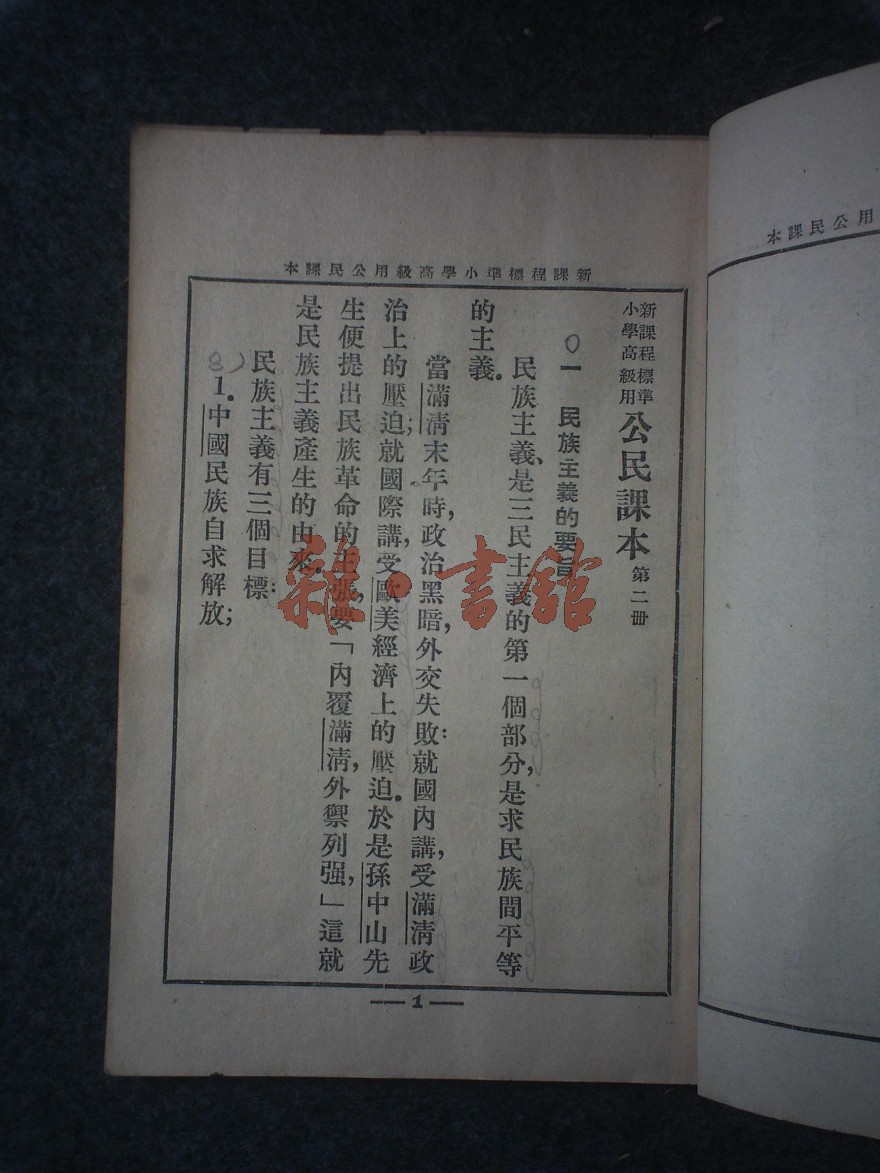 新課程標準小學高級用公民課本
新課程標準
小學高級用
公民課本 第二冊
一 民族主義的要旨
民族主義、是三民主義的第一個部分，是求民族間平等
的主義。
當滿清末年時，政治黑暗，外交失敗：就國內講，受滿清政
治上的壓迫；就國際講，受歐美經濟上的壓迫。於是孫中山先
生便提出民族革命的主張，要「內覆滿清，外禦列强，」這就
是民族主義產生的由來。
民族主義有三個目標：
1. 中國民族自求解放；
1
用公民課本
書館